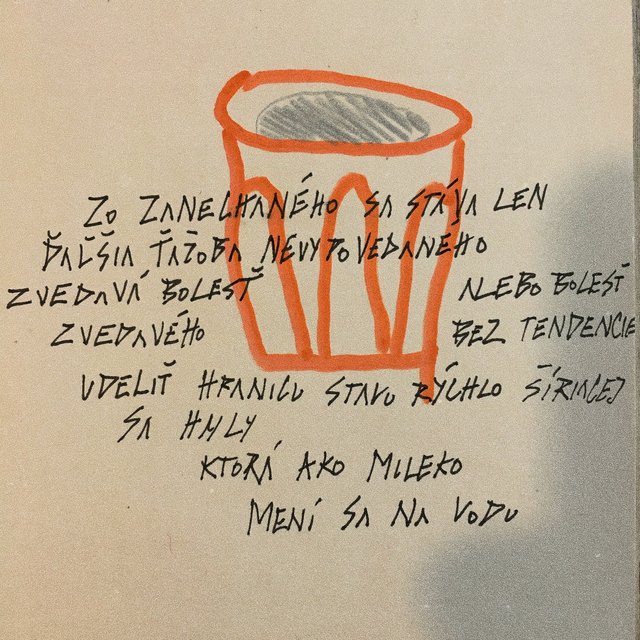 ZO ZANECHANÉHO SA STÁVA LEN
ĎALŠIA ŤAŽOBA NEVYPOVEDANÉHO
ZVEDAVÁ BOLESŤ NEBO BOLESŤ
ZVEDAVÉHO BEZ TENDENCIE
UDELIŤ HRANICU STAVU RÝCHLO ŠÍRIACEJ
SA HMLY
KTORÁ AKO MLIEKO
MENÍ SA NA VODU